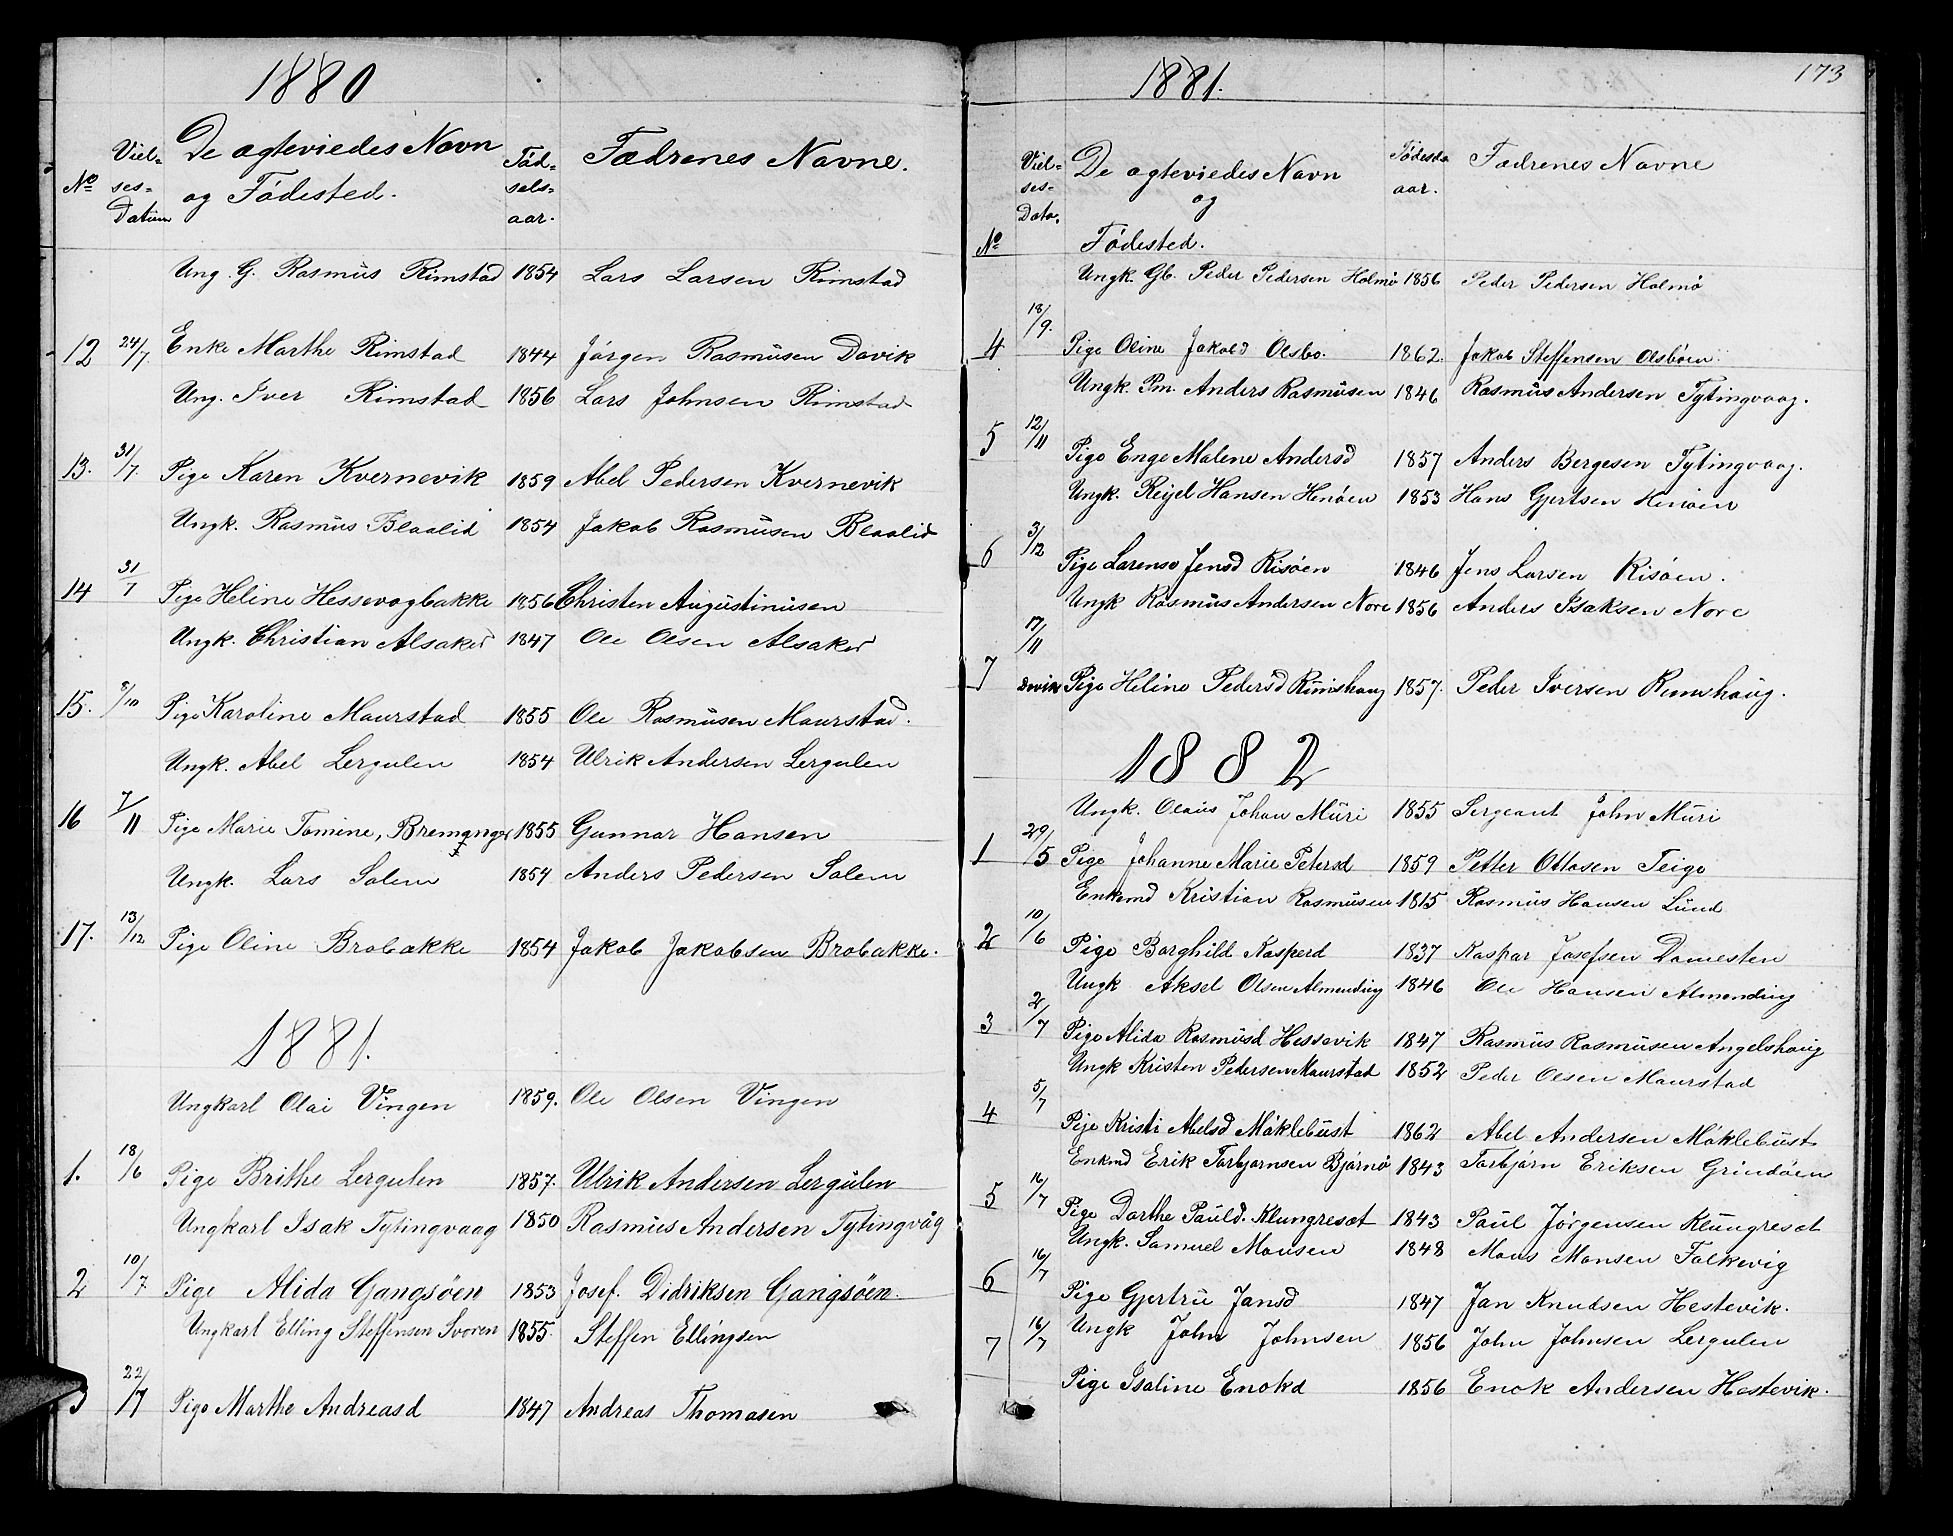 1880
No Viel- De ægteviedes Navn Fød- Fædrenes Navne.
ses- og Fødested. sels-
Datum aar.
Ung. G. Rasmus Rimstad 1854 Lars Larsen Rimstad
12 24/7. Enke Marthe Rimstad 1844 Jørgen Rasmusen Davik
Ung. Iver Rimstad 1856 Lars Johnsen Rimstad
13. 31/7. Pige Karen Kvernevik 1859 Abel Pedersen Kvernevik
Ungk. Rasmus Blaalid 1854 Jakob Rasmusen Blaalid
14 31/7 Pige Heline Hessevogbakke 1856 Christen Augustinusen
Ungk. Christian Alsaker 1847 Ole Olsen Alsaker
15. 8/10 Pige Karoline Maurstad 1855 Ole Rasmusen Maurstad.
Ungk. Abel Lergulen 1854 Ulrik Andersen Lergulen
16 7/11 Pige Marie Tomine, Bremanger 1855 Gunnar Hansen
Ungk. Lars Salem 1854 Anders Pedersen Salem
17. 13/12 Pige Oline Brobakke 1854 Jakob Jakobsen Brobakke.
1881.
Ungkarl Olai Vingen 1859. Ole Olsen Vingen
1. 18/6 Pige Brithe Lergulen 1857. Ulrik Andersen Lergulen
Ungkarl Isak Tytingvaag 1850 Rasmus Andersen Tytingvåg
2 10/7 Pige Alida Gangsøen 1853 Josef. Didriksen Gangsøen.
Ungkarl Elling Steffensen Svoren 1855. Steffen Ellingsen
3 22/7 Pige Marthe Andreasd 1847 Andreas Thomasen
1881. 173
Viel- De ægteviedes Navn Fødesda Fædrenes Navne
ses- og aar.
Data.
No Fødested.
Ungk. Gb. Peder Pedersen Holmø 1856 Peder Pedersen Holmø
4 18/9. Pige Oline Jakobd Olsbø. 1862. Jakob Steffensen Olsbøen
Ungk. Pm. Anders Rasmusen 1846 Rasmus Andersen Tytingvaag.
5 12/11 Pige Enge Malene Andersd 1857 Anders Bergesen Tytingvaag.
Ungk. Reijel Hansen Henøen 1853 Hans Gjertsen Henøen
6 3/12 Pige Larense Jensd Risøen 1846 Jens Larsen Risøen.
Ungk Rasmus Andersen Nore 1856 Anders Isaksen Nore
17/11
7 Davik Pige Heline Pedersd Rimshaug 1857. Peder Iversen Rimshaug.
1882
Ungk. Olaus Johan Muri 1855 Sergeant John Muri
1 29/5 Pige Johanne Marie Petersd 1859 Petter Ottosen Teige
Enkemd Kristian Rasmusen 1815 Rasmus Hansen Lund
2 10/6 Pige Borghild Kasperd 1837 Kaspar Josefsen Domesten
Ungk Aksel Olsen Almending 1846 Ole Hansen Almending
3 2/7 Pige Alida Rasmusd Hessevik 1847 Rasmus Rasmusen Angelshaug
Ungk Kristen Pedersen Maurstad 1852 Peder Olsen Maurstad
4 5/7 Pige Kristi Abelsd Møklebust 1862 Abel Andersen Møklebust
Enkmd Erik Torbjørnsen Bjørnø 1843 Torbjørn Eriksen Grindøen
5 16/7 Pige Dorthe Pauld. Klungreset 1843 Paul Jørgensen Klungreset
Ungk. Samuel Monsen 1848 Mons Monsen Falkevig
6 16/7 Pige Gjertru Jansd 1847 Jan Knudsen Hestevik.
Ungk John Johnsen 1856 John Johnsen Lergulen
7 16/7 Pige Isaline Enokd 1856 Enok Andersen Hestevik.